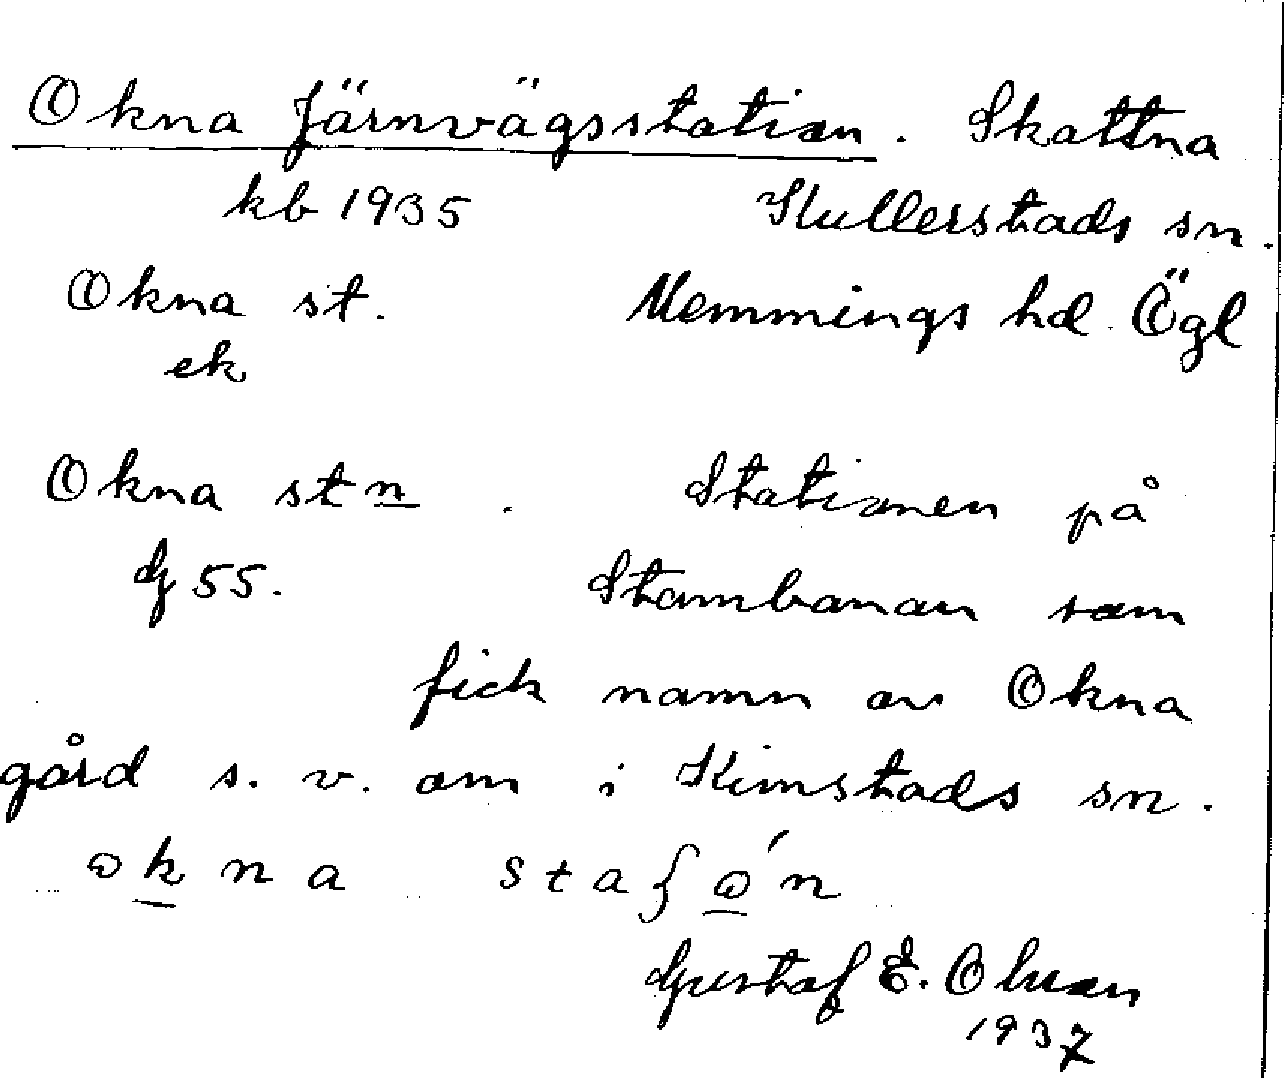 Okna Järnvägsstation. Skattna
kb 1935 Kullerstads sn.
Okna st. Memmings hd. Ögl
ek
Okna stn. Stationen på
dg 55. Stambanan som
fick namn av Okna
gård s. v. om i Kimstads sn.
okna sta
Gustaf E. Olsson
1937